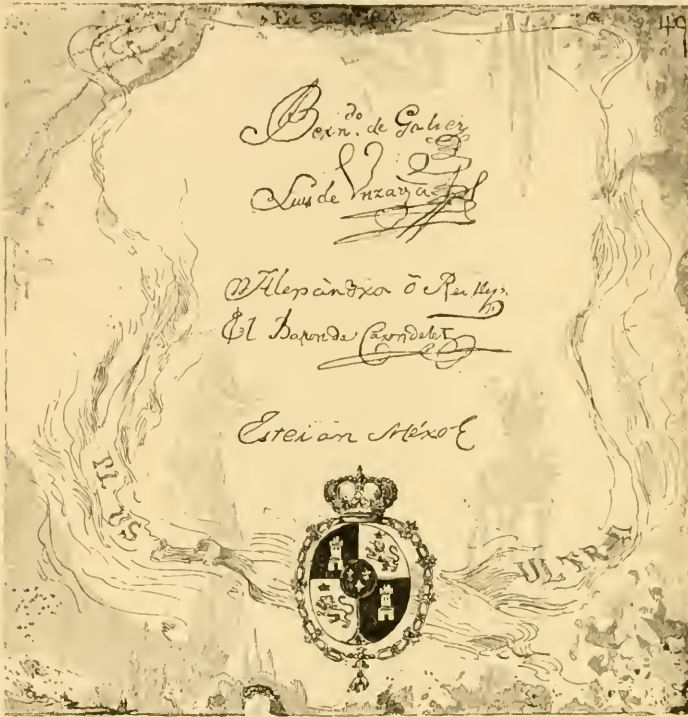 49
Bern.do de Galvez
Luis de Unzaga
Alexandro ô Reilly
El Baron de Carondelet
Estevan Miró
PLUS
ULTRA